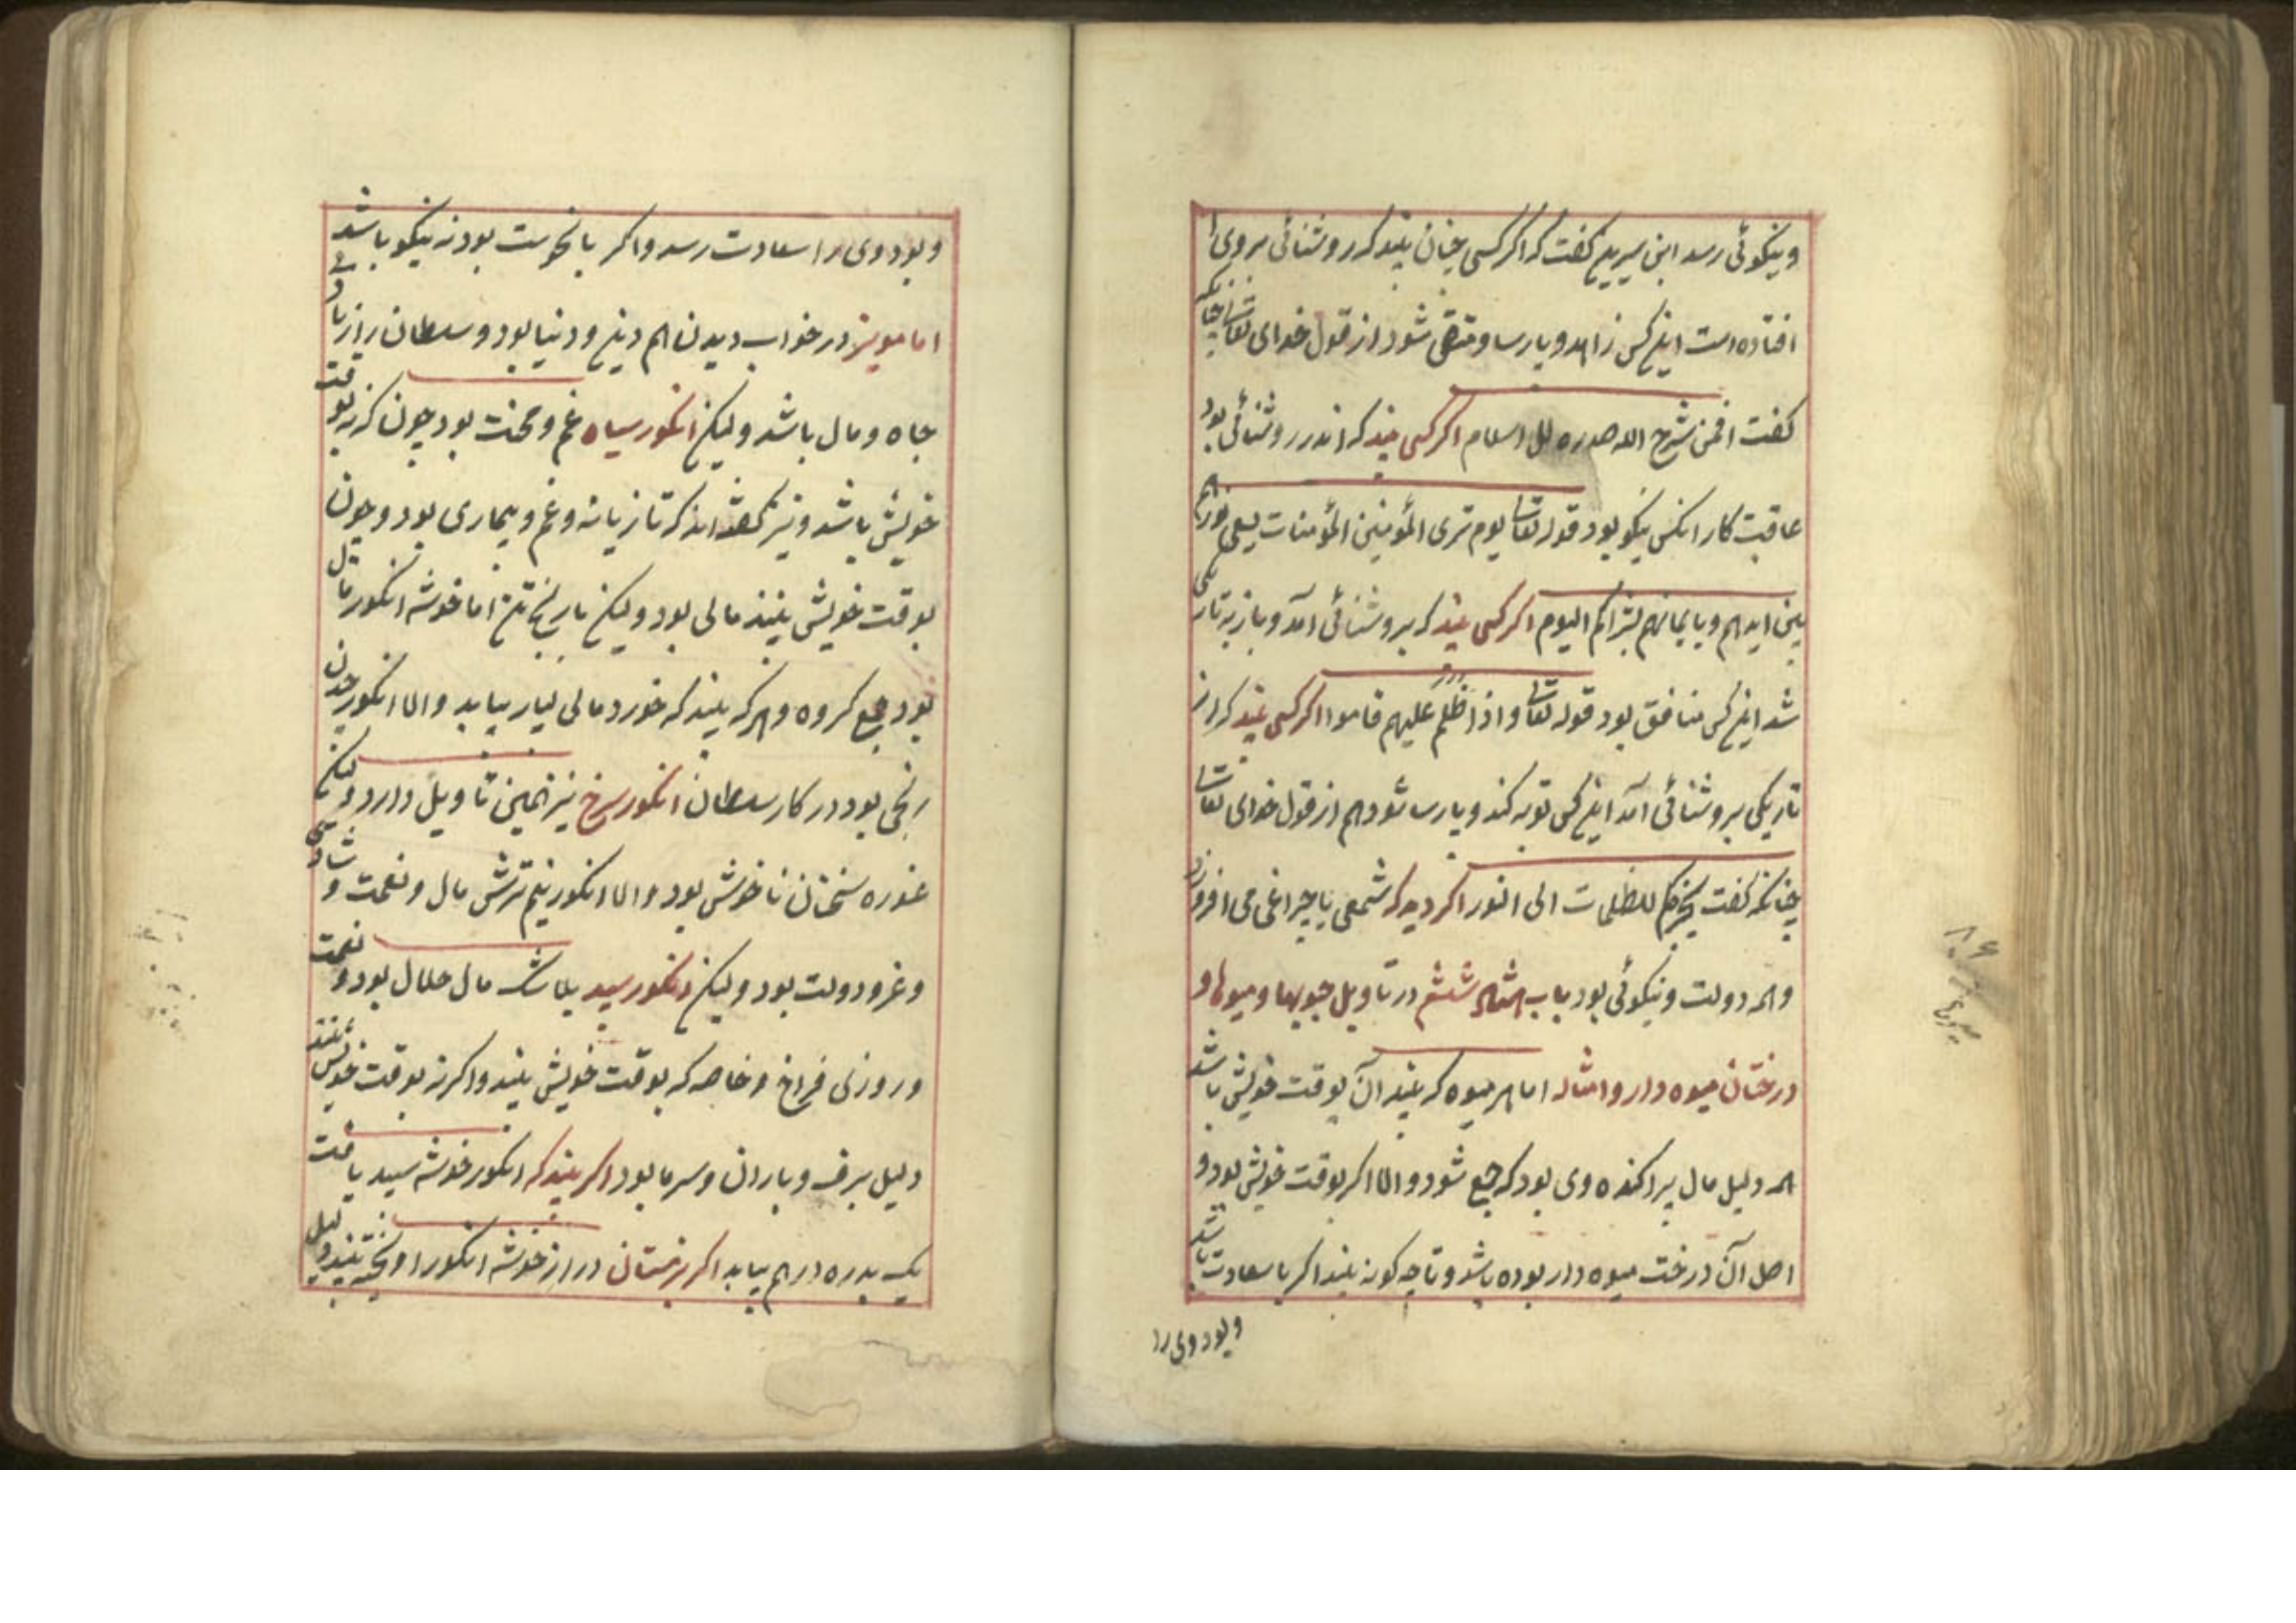 و نیکوئی رسد ابن سیرین کفت که اکر کسی چنان بیند که روشنائی بروی
افتاده است این کس زاهد و پارسا و متقی شود از قول خدای تعالی چنانکه
کفت افمن شرح الله صدره للاسلام اکر کسی بیند که اندر روشنائی بود
عاقبت کار انکس نیکو بود قوله تعالی یوم تری المؤمنین المؤمنات یسعی نورهم
بین ایدیهم و بایمانهم بشراکم الیوم اکر کسی بیند که بروشنائی آمد و باز به تاریکی
شد این کس منافق بود قوله تعالی و اذا اظلم علیهم قاموا اکر کسی بیند که از
تاریکی بروشنائی آمد این کس توبه کند و پارسا شود هم از قول خدای تعالی
چنانکه کفت یخرجکم للظلمات الی النور اکر دید که شمعی یا چراغی می افروزد
و الم دولت و نیکوئی بود باب ششم در تاویل چوبها و میوها و
درختان میوه دار و امثاله اما هر میوه که بیند آن بوقت خویش باشد
الم دلیل مال پراکنده وی بود که جمع شود و الا اکر بوقت خویش بود و
اصل آن درخت میوه دار بوده باشد و تا چه کونه بیند اکر با سعادت باشد
و بود وی را
و بود وی را سعادت رسد و اکر با نحوست بود نه نیکو باشد
اما مویز در خواب دیدن الم دین و دنیا بود و سلطان را زیادتی
جاه و مال باشد ولیکن انکور سیاه غم و محنت بود چون که نه بوقت
خویش باشد و نیز کفته اند که تازیانه و غم و بیماری بود و چون
بوقت خویش بیند مالی بود ولیکن با رنج تن اما خوشه انکور مال
بود جمع کروه و هر که بیند که خورد مالی بسیار بیابد و الا انکور چدن
رنجی بود در کار سلطان انکور سرخ نیز همین تاویل دارد ولیکن
غوره سخنان ناخوش بود و الا انکور نیم ترش مال و نعمت و شادی
و عز و دولت بود ولیکن انکور سپید بلا شک مال حلال بود و نعمت
و روزی فراخ و خاصه که بوقت خویش بیند و اکر نه بوقت خویش بیند
دلیل برف و باران و سرما بود اکر بیند که انکور خوشه سپید یافت
یک بدره درهم بیابد اکر بزمستان دراز خوشه انکور اویخته بیند دلیل